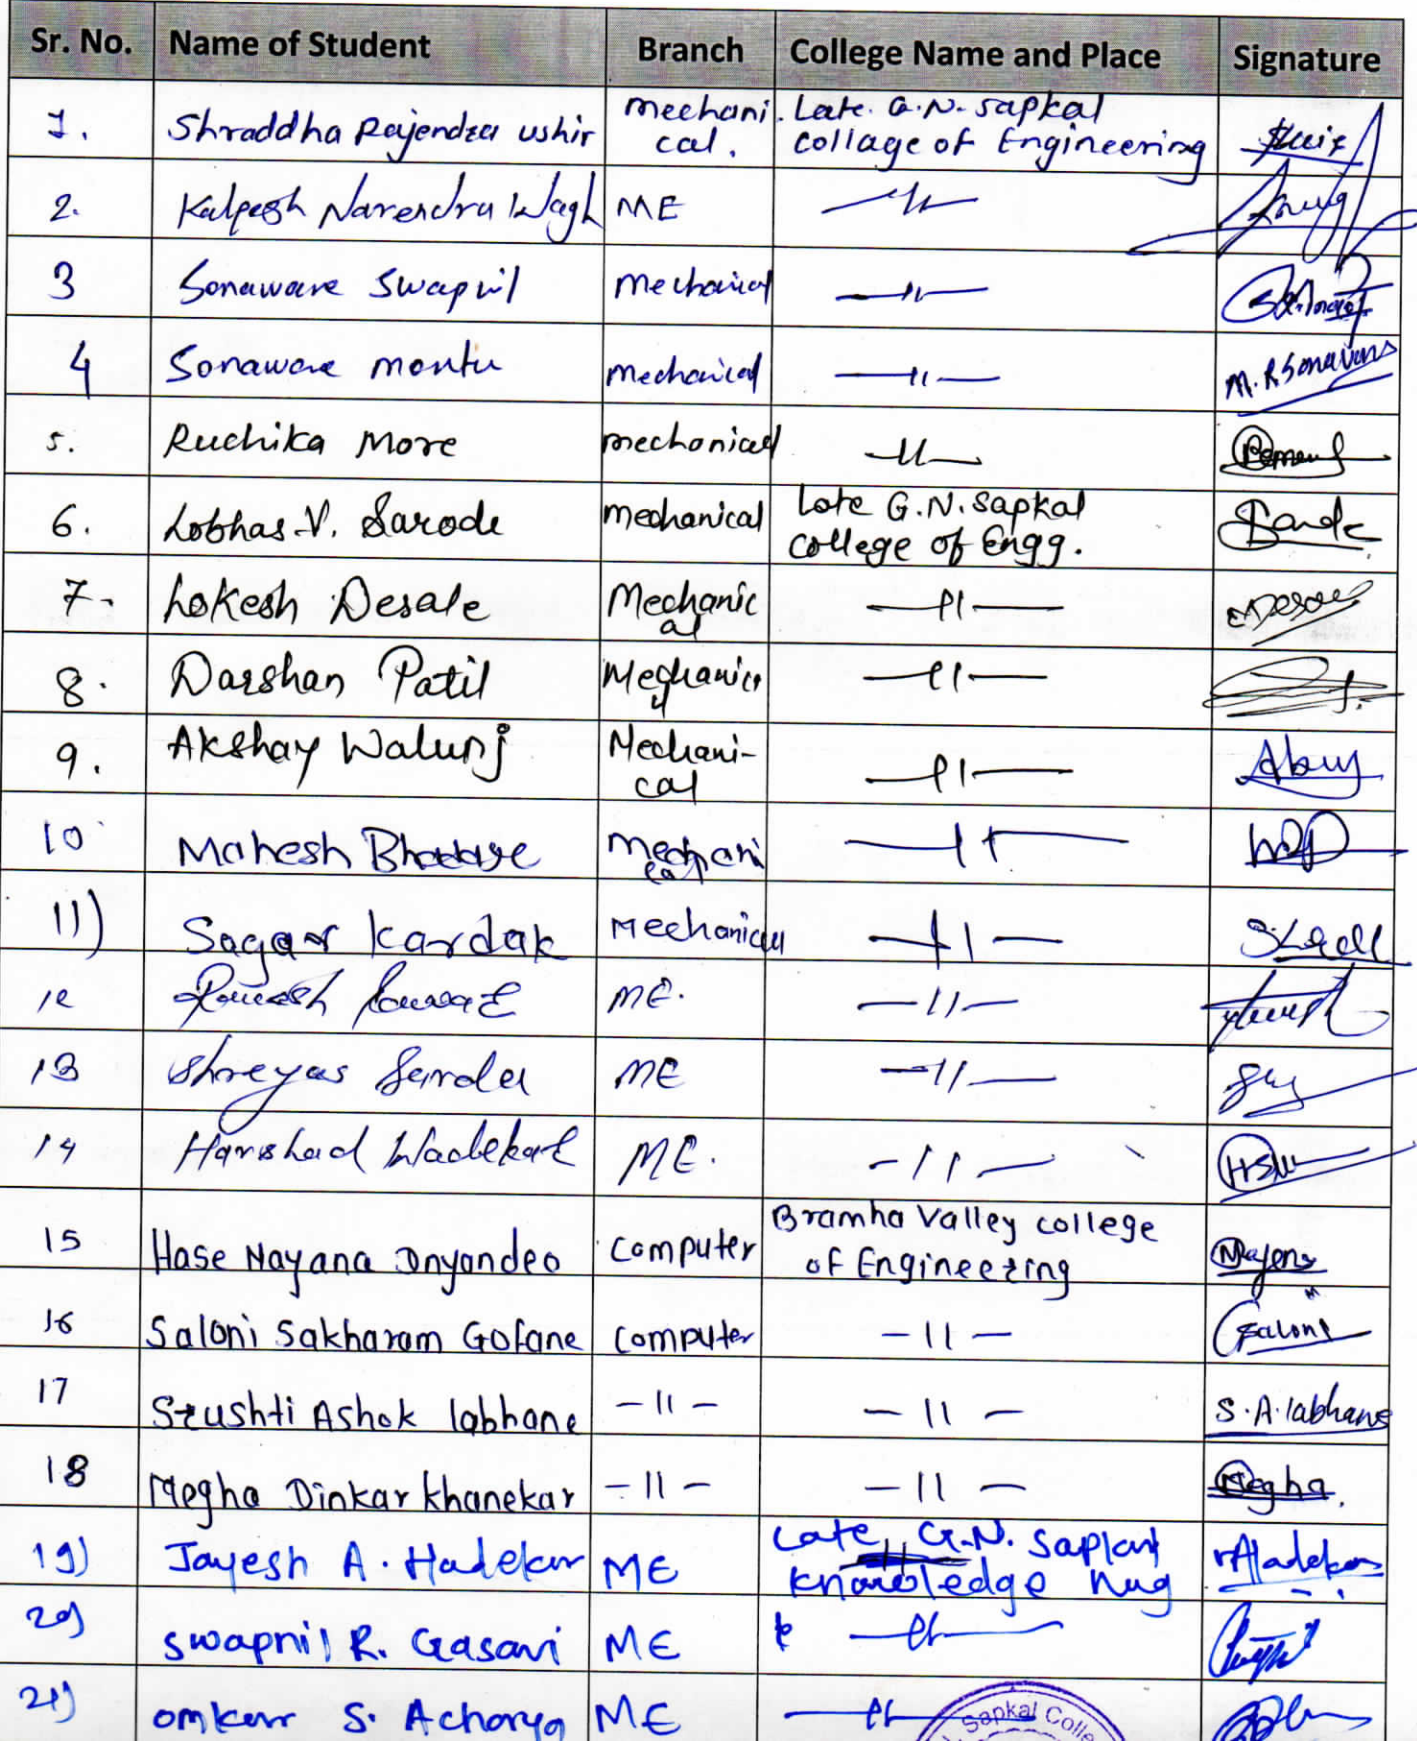 Sr. No. Name of Student Branch College Name and Place Signature
1. Shraddha Rajendra ushir mechani. Late. G.N. sapkal
cal. collage of Engineering
2. Kalpesh Narendra Wagh ME —"—
3 Sonawane Swapnil mechanical —"—
4 Sonawane montu mechanical —"— M. R Sonavane
5. Ruchika More mechanical —"—
6. V. Sarode mechanical Late G.N. Sapkal
college of Engg.
7. Lokesh Desale Mechanic —"—
al
8. Darshan Patil Mechanica —"—
l
9. Akshay Walunj Mechani- —"—
cal
10 Mahesh mechani —"—
cal
11) Sagar Kardak Mechanical —"—
12 ME. —"—
13 Shreyas ME —"—
14 Harshad Wadekar ME. —"— HSW
15 Hase Nayana Dnyandeo computer Bramha Valley college
of Engineering
16 Saloni Sakharam Gofane computer —"— Saloni
17 Srushti Ashok labhane —"— —"— S.A.labhane
18 Megha Dinkar khanekar —"— —"— Megha.
19) Jayesh A. Hadekar ME Late G.N. Sapkal
knowledge hug
20) Swapnil R. Gasavi ME —"—
21) omkar S. Acharya ME —"—
Sapkal Colle